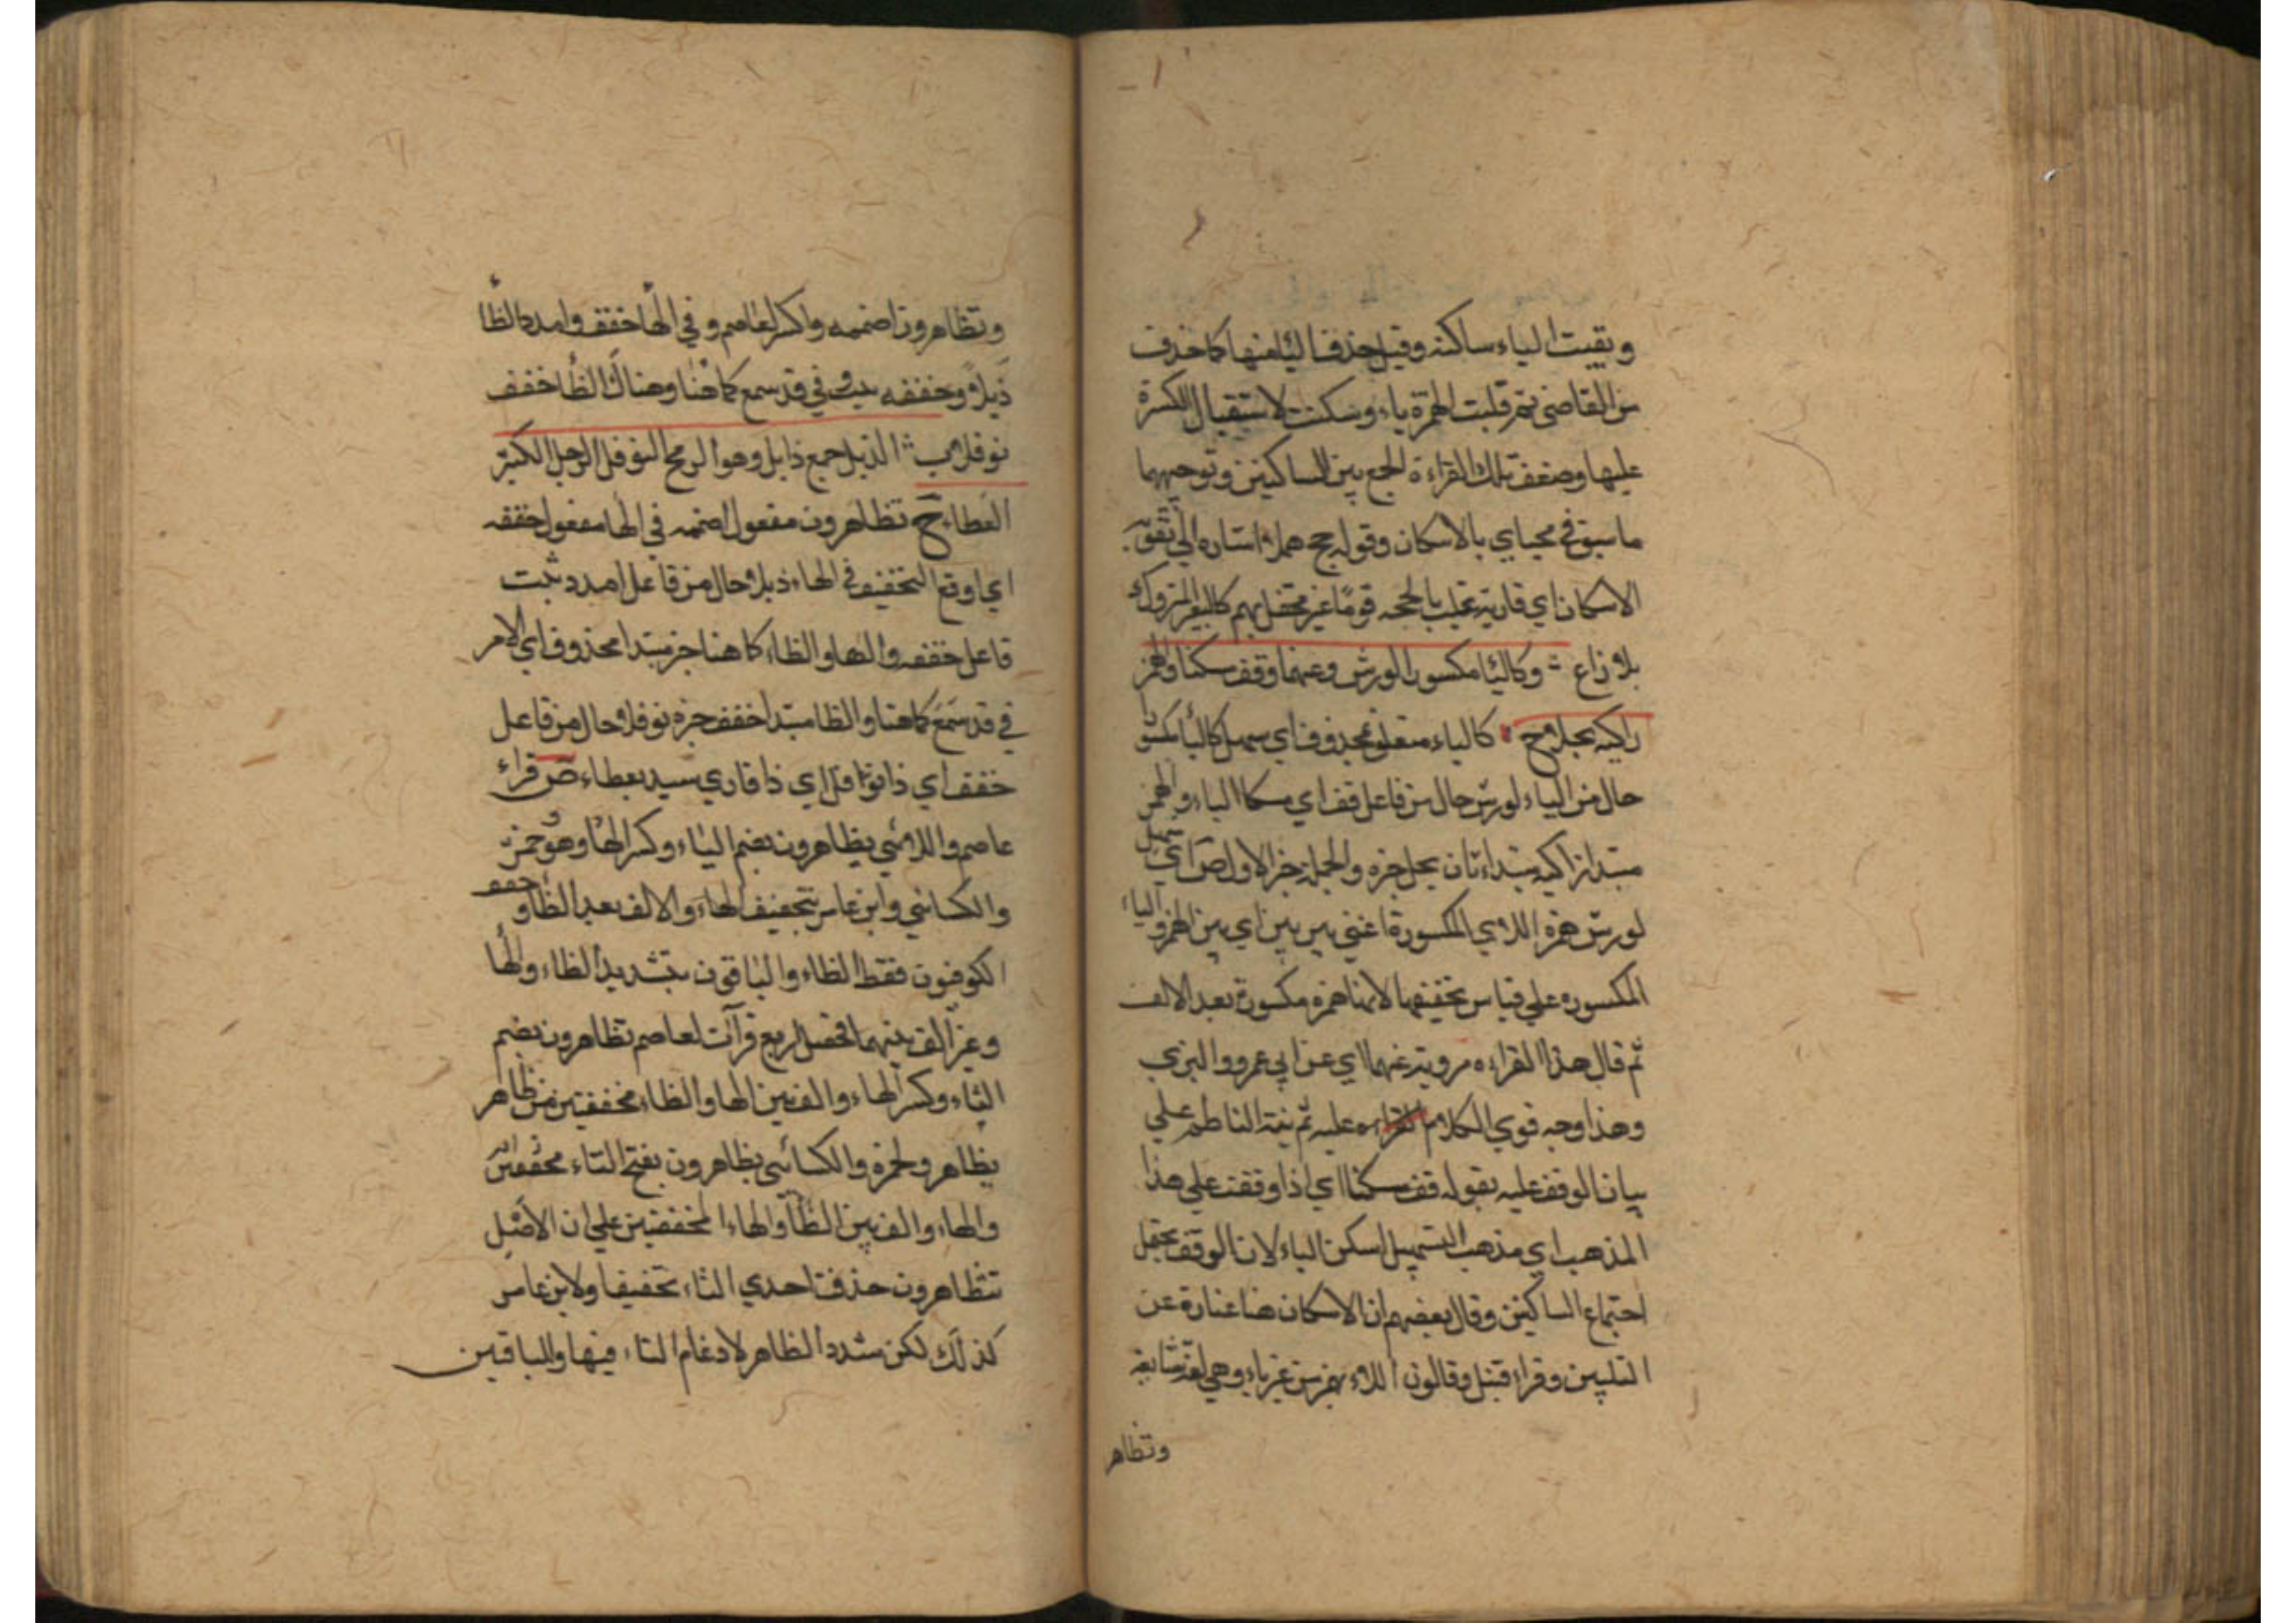 وبقيت الياء ساكنه وقيل حذفت الياء منها كما حذفت
من القاضي ثم قلبت الهمزة ياء وسكنت لاستقبال الكسرة
عليها وضعفت تلك القراءة لجمع بين الساكنين وتوجيهها
ما سبق في محياي بالاسكان وقوله حج هملا اشاره الي تقو
الاسكان اي قاريه غلب بالحجه قوما غير محتفل بهم كالبعير المتروك
بلا راع وكالياء مكسورا لورش وعنهما وقف مسكنا والهمز
زاكيه بجلا ح كالياء متعلق بمحذوف اي سهل كالياء مكسو
حال من الياء لورش حال من فاعل قف اي مسكنا الياء والهمز
مبتدا زاكيه مبتداء ثان بجلا خبره والجملة خبر الاول ص اي سهل
لورش همزة اللاي المكسورة اعني بين بين اي بين الهمز والياء
المكسوره علي قياس تخفيفها لانها همزه مكسورة بعد الالف
ثم قال هذا القراءه مروية عنهما اي عن ابي عمرو والبزي
وهذا وجه قوي الكلام القراءه عليه ثم نبه الناظم علي
بيان الوقف عليه بقوله قف مسكنا اي اذا وقفت علي هذا
المذهب اي مذهب التسهيل اسكن الياء لان الوقف يحتمل
اجتماع الساكنين وقال بعضهم ان الاسكان هنا عبارة عن
التليين وقراء قنبل وقالون اللاء بهمز من غير ياء وهي لغة شايعة
وتظاهر
وتظاهرون اضممه واكسر لعاصم وفي الهاء خفف وامدد الظاء
ذبلا وخففه ثبت وفي قد سمع كما هنا وهناك الظاء خفف
نوفلا ب الذبل جمع ذابل وهو الرمح النوفل الرجل الكثير
العطاء ح تظاهرون مفعول اضممه في الهاء مفعول خففه
اي اوقع التخفيف في الهاء ذبلا حال من فاعل امدد ثبت
فاعل خففه والهاء والظاء كما هنا خبر مبتدا محذوف اي الامر
في قد سمع كما هنا والظا مبتدا خفف خبره نوفلا حال من فاعل
خفف اي ذا نوافل اي ذا قاري سيد بعطاء ص قراء
عاصم واللائي يظاهرون بضم الياء وكسر الهاء وهو حمزة
والكسائي وابن عامر بتخفيف الهاء والالف بعد الظاء وخفف
الكوفيون فقط الظاء والباقون بتشديد الظاء والهاء
وعن الف بينهما فحصل اربع قرآت لعاصم تظاهرون بضم
التاء وكسر الهاء والف بين الهاء والظاء مخففتين من ظاهر
يظاهر ولحمزة والكسائي يظاهرون بفتح التاء مخففتين
والهاء والف بين الظاء والهاء المخففتين علي ان الاصل
تتظاهرون حذفت احدي التاء تخفيفا ولابن عامر
كذلك لكن مشدد الظاهر لادغام التاء فيها وللباقين